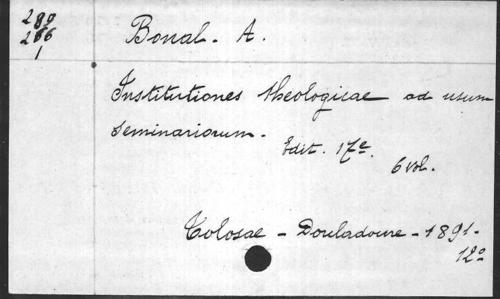 289
266
1
Bonal. A.
Institutiones theologicae ad usum
seminariorum.
Edit. 17e.
6 vol.
Tolosae - Douladoure - 1891.
12o